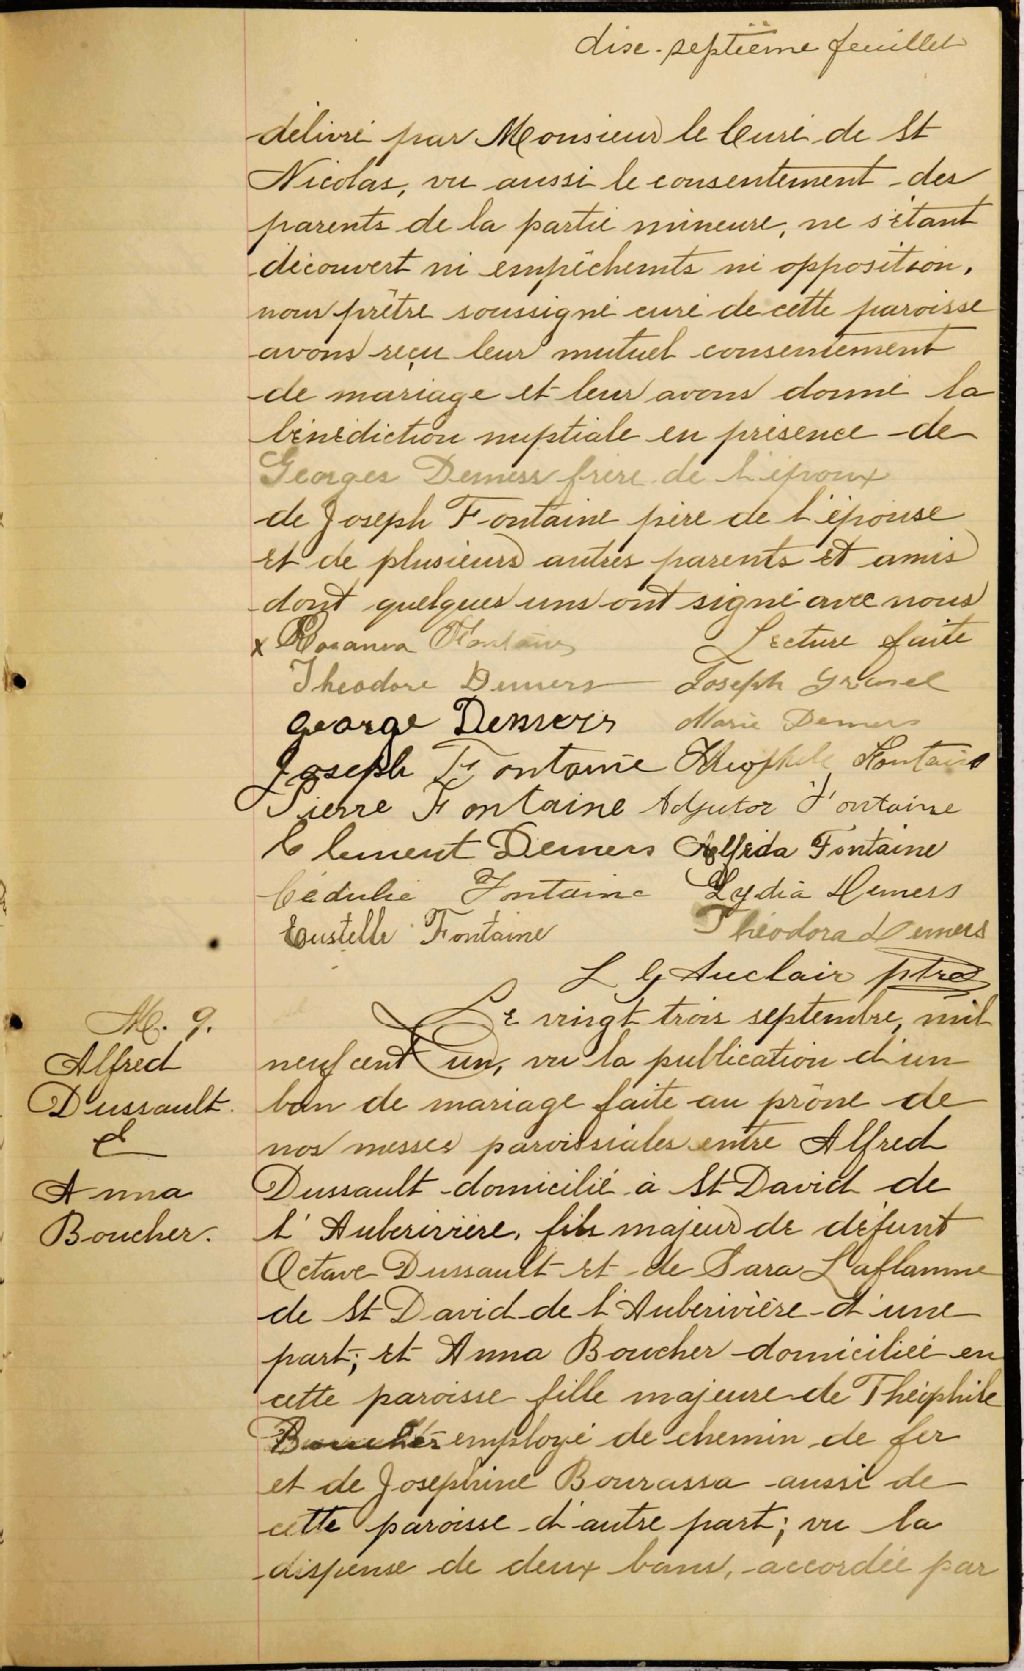 dix-septième feuillet
délivré par Monsieur le Curé de St
Nicolas, vu aussi le consentement des
parents de la partie mineure, ne s'étant
découvert ni empêchemts ni opposition,
nous prêtre soussigné curé de cette paroisse
avons reçu leur mutuel consentement
de mariage et leur avons donné la
bénédiction nuptiale en présence de
Georges Demers frère de l'époux
de Joseph Fontaine père de l'épouse
et de plusieurs autres parents et amis
dont quelques uns ont signé avec nous
x Rosanna Fontaine Lecture faite
Theodore Demers Joseph Gravel
George Demers Marie Demers
Joseph Fontaine Théophile Fontaine
Pierre Fontaine Adjutor Fontaine
Clement Demers Alfrida Fontaine
Cédulie Fontaine Lydia Demers
Eustelle Fontaine Théodora Demers
L G Auclair ptre
M. 9.
Alfred
Dussault
&
Anna
Boucher.
Le vingt trois septembre, mil
neuf cent un, vu la publication d'un
ban de mariage faite au prône de
nos messes paroissiales entre Alfred
Dussault domicilié à St David de
l'Auberivière, fils majeur de défunt
Octave Dussault et de Sara Laflamme
de St David de l'Auberivière d'une
part; et Anna Boucher domiciliée en
cette paroisse fille majeure de Théophile
Boucher employé de chemin de fer
et de Josephine Bourassa aussi de
cette paroisse d'autre part; vu la
dispense de deux bans, accordée par